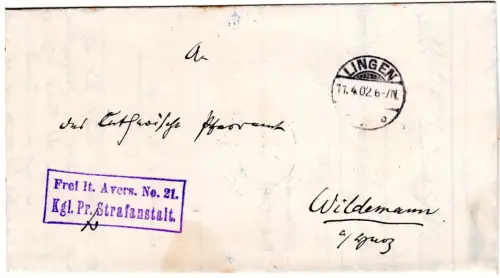 An
LINGEN
11.4.02.6-7N.
a
das Catholische Pfarramt
Frei lt. Avers. No. 21.
Kgl. Pr. Strafanstalt.
Wildemann
a/